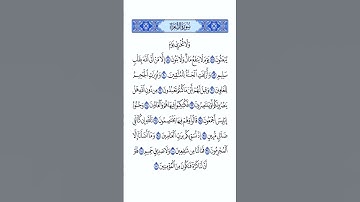 سُورَةُ الشُّعَرَاءِ
وَلَا تُخْزِنِي يَوْمَ
يُبْعَثُونَ ٨٧ يَوْمَ لَا يَنفَعُ مَالٌ وَلَا بَنُونَ ٨٨ إِلَّا مَنْ أَتَى ٱللَّهَ بِقَلْبٍ
سَلِيمٍ ٨٩ وَأُزْلِفَتِ ٱلْجَنَّةُ لِلْمُتَّقِينَ ٩٠ وَبُرِّزَتِ ٱلْجَحِيمُ
لِلْغَاوِينَ ٩١ وَقِيلَ لَهُمْ أَيْنَ مَا كُنتُمْ تَعْبُدُونَ ٩٢ مِن دُونِ ٱللَّهِ هَلْ
يَنصُرُونَكُمْ أَوْ يَنتَصِرُونَ ٩٣ فَكُبْكِبُوا۟ فِيهَا هُمْ وَٱلْغَاوُۥنَ ٩٤ وَجُنُودُ
إِبْلِيسَ أَجْمَعُونَ ٩٥ قَالُوا۟ وَهُمْ فِيهَا يَخْتَصِمُونَ ٩٦ تَٱللَّهِ إِن كُنَّا لَفِي
ضَلَٰلٍ مُّبِينٍ ٩٧ إِذْ نُسَوِّيكُم بِرَبِّ ٱلْعَٰلَمِينَ ٩٨ وَمَآ أَضَلَّنَآ إِلَّا
ٱلْمُجْرِمُونَ ٩٩ فَمَا لَنَا مِن شَٰفِعِينَ ١٠٠ وَلَا صَدِيقٍ حَمِيمٍ ١٠١ فَلَوْ
أَنَّ لَنَا كَرَّةً فَنَكُونَ مِنَ ٱلْمُؤْمِنِينَ ١٠٢